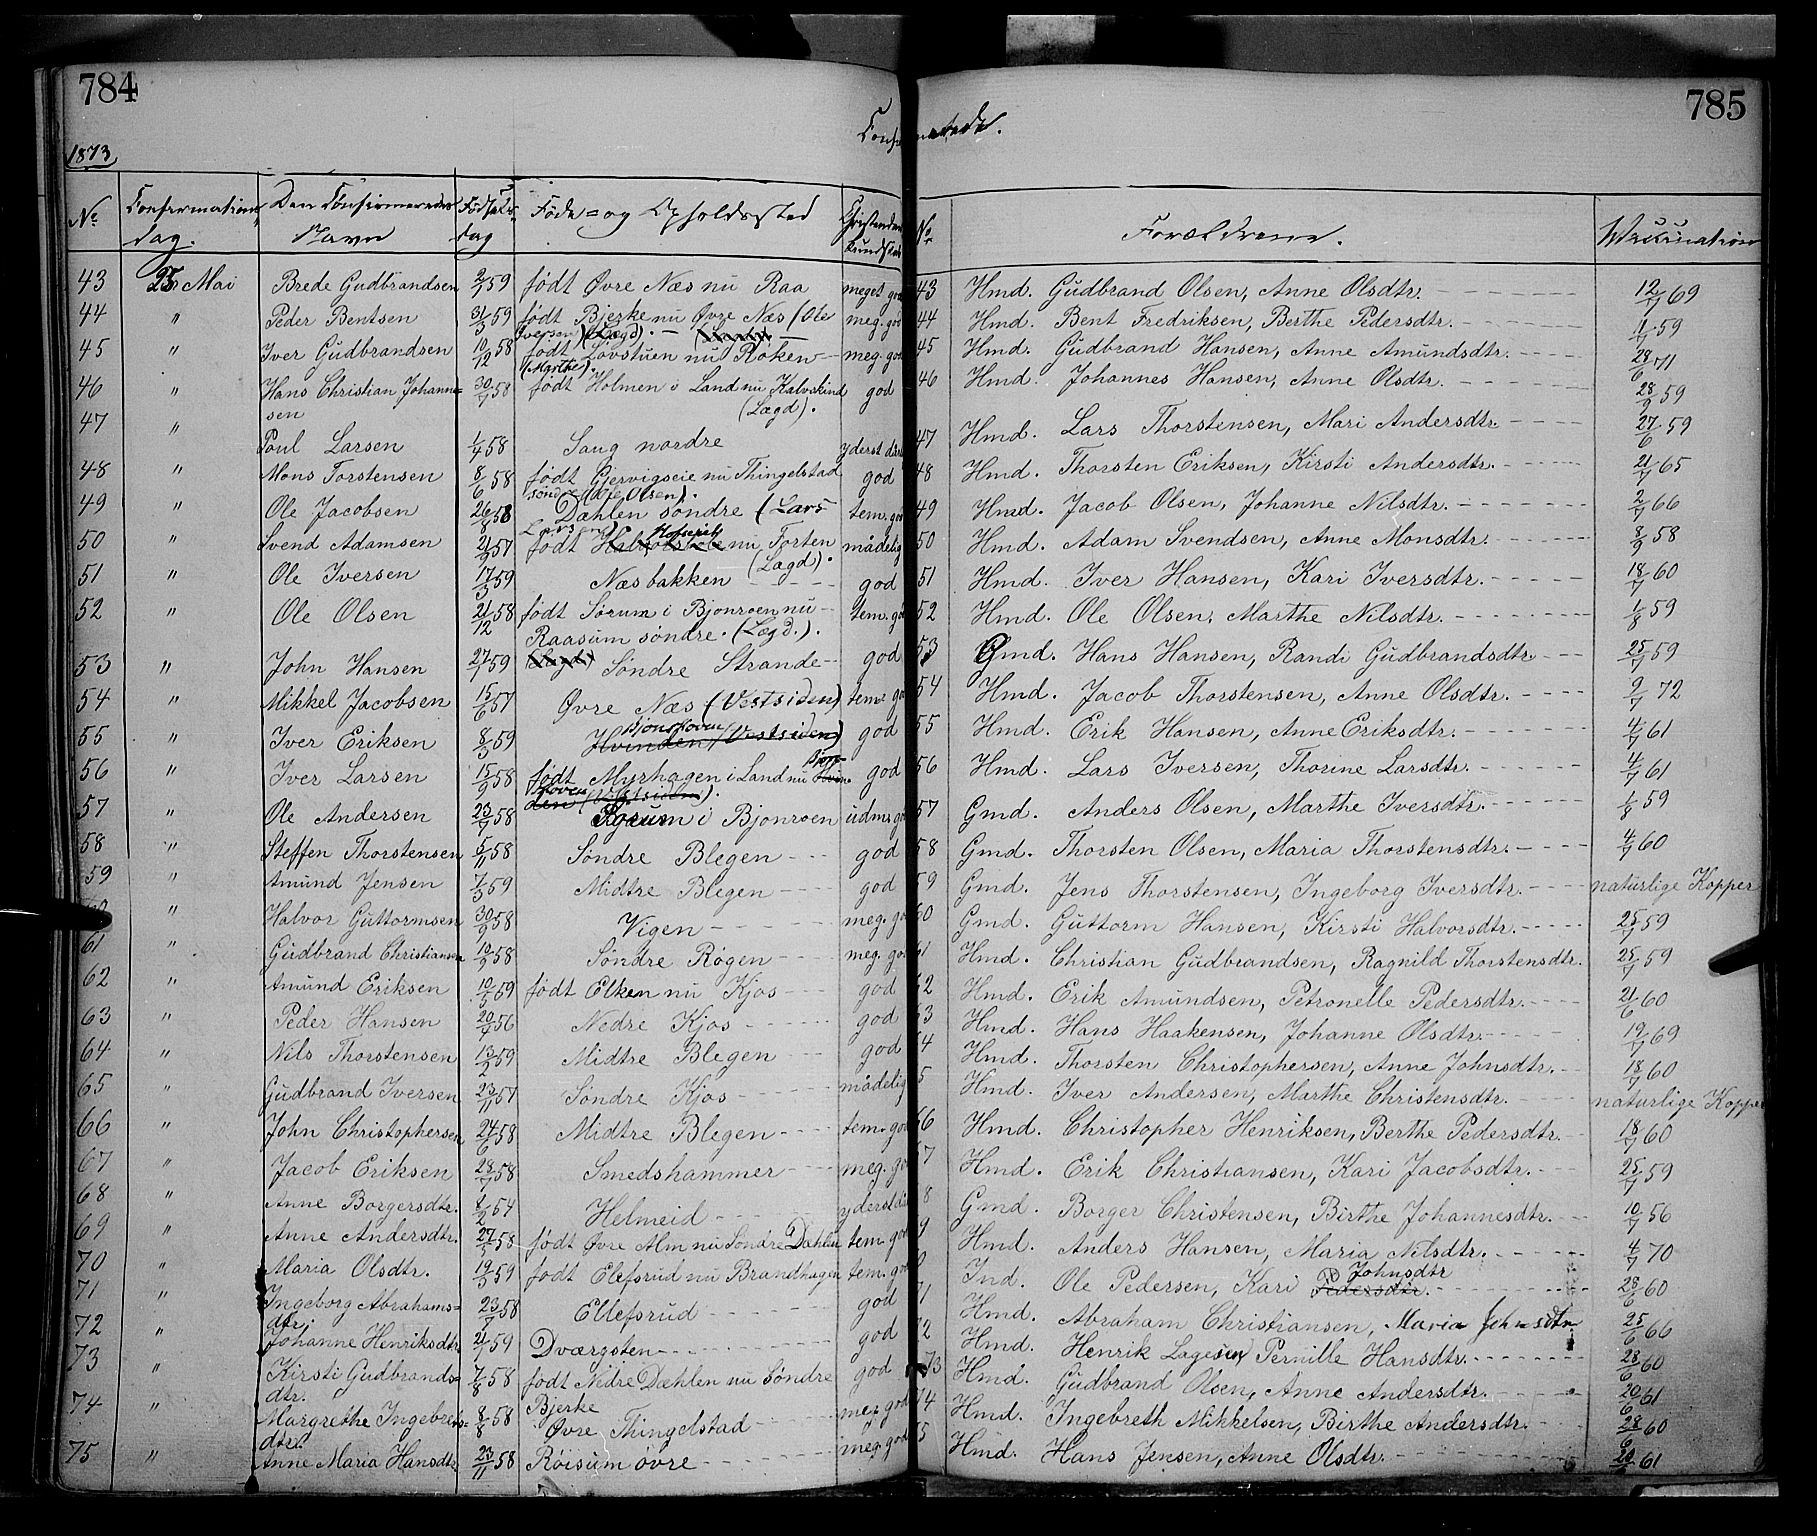 784
785
Confirmerede.
1873
No Confirmations dag. Den Confirmeredes Navn Fødselsdag Føde- og Opholdssted Christendoms Kundskab No Forældrene. Vaccination
43 25 Mai Brede Gudbrandsen 2/7 59 født Øvre Næs nu Raa meget god 43 Hmd. Gudbrand Olsen, Anne Olsdtr. 12/7 69
44 " Peder Bentsen 31/3 59 født Bjerke nu Øvre Næs (Ole Iversen) (Lægd). meg. god 44 Hmd. Bent Fredriksen, Berthe Pedersdtr. 59
45 " Iver Gudbrandsen 10/12 58 født Lovstuen nu Røken (Myrthe). meg. god 45 Hmd. Gudbrand Hansen, Anne Amundsdtr. 28/6 71
46 " Hans Christian Johannesen 30/7 58 født Holmen i Land nu Kalvskind (Lægd). god 46 Hmd. Johannes Hansen, Anne Olsdtr. 28/9 59
47 " Poul Larsen 58 Saug nordre yderst 47 Hmd. Lars Thorstensen, Mari Andersdtr. 27/6 59
48 " Mons Torstensen 8/6 58 født Gjervigseie nu Thingelstad søndre (Ole Olsen). god 48 Hmd. Thorsten Eriksen, Kirsti Andersdtr. 21/7 65
49 " Ole Jacobsen 26/8 58 Dæhlen søndre (Lars Larsen) tem. god 49 Hmd. Jacob Olsen, Johanne Nilsdtr. 2/7 66
50 " Svend Adamsen 57 født nu Forten (Lægd). mådelig 50 Hmd. Adam Svendsen, Anne Monsdtr. 8/9 58
51 " Ole Iversen 17/3 59 Næsbakken god 51 Hmd. Iver Hansen, Kari Iversdtr. 18/7 60
52 " Ole Olsen 21/12 58 født Sørum i Bjonroen nu Raasum søndre. (Lægd.). tem. god 52 Hmd. Ole Olsen, Marthe Nilsdtr. 1/8 59
53 " John Hansen 27/7 59 Søndre Strande god 53 Gmd. Hans Hansen, Randi Gudbrandsdtr 25/7 59
54 " Mikkel Jacobsen 15/6 57 Øvre Næs (Vestsiden) tem. god 54 Hmd. Jacob Thorstensen, Anne Olsdtr. 9/7 72
55 " Iver Eriksen 8/3 59 Hvinden (Vestsiden) god 55 Hmd. Erik Hansen, Anne Eriksdtr. 4/7 61
56 " Iver Larsen 15/9 58 født Myrhagen i Land nu Hvinden (Vestsiden). god 56 Hmd. Lars Iversen, Thorine Larsdtr. 4/7 61
57 " Ole Andersen 23/7 58 i Bjonroen udm. god 57 Gmd. Anders Olsen, Marthe Iversdtr. 1/8 59
58 " Steffen Thorstensen 5/11 58 Søndre Blegen god 58 Gmd. Thorsten Olsen, Maria Thorstensdtr. 4/7 60
59 " Amund Jensen 7/3 59 Midtre Blegen god 59 Gmd. Jens Thorstensen, Ingeborg Iversdtr. naturlige Kopper
60 " Halvor Guttormsen 30/9 58 Vigen meg. god 60 Gmd. Guttorm Hansen, Kirsti Halvorsdtr. 25/7 59
61 " Gudbrand Christiansen 10/9 58 Søndre Røgen meg. god 61 Hmd. Christian Gudbrandsen, Ragnild Thorstensdtr. 25/7 59
62 " Amund Eriksen 10/5 59 født Elken nu Kjos god 62 Hmd. Erik Amundsen, Petronelle Pedersdtr. 21/6 60
63 " Peder Hansen 20/7 56 Nedre Kjos god 63 Hmd. Hans Haakensen, Johanne Olsdtr. 19/7 69
64 " Nils Thorstensen 13/2 59 Midtre Blegen god 64 Hmd. Thorsten Christophersen, Anne Johnsdtr. 18/7 60
65 " Gudbrand Iversen 23/11 57 Søndre Kjos mådelig 65 Hmd. Iver Andersen, Marthe Christensdtr. naturlige Kopper
66 " John Christophersen 24/6 58 Midtre Blegen tem. god 66 Hmd. Christopher Henriksen, Berthe Pedersdtr. 18/7 60
67 " Jacob Eriksen 28/7 58 Smedshammer meg. god 67 Hmd. Erik Christiansen, Kari Jacobsdtr. 25/7 59
68 " Anne Borgersdtr. 8/2 54 Helmeid yderst 68 Gmd. Borger Christensen, Birthe Johannesdtr. 10/7 56
69 " Anne Andersdtr. 27/5 58 født Øvre Alm nu Søndre Dæhlen tem. god 69 Hmd. Anders Hansen, Maria Nilsdtr. 4/7 70
70 " Maria Olsdtr. 19/5 59 født Elefsrud nu Brandhagen tem. god 70 Ind. Ole Pedersen, Kari Pedersdtr. Johnsdtr 28/6 60
71 " Ingeborg Abrahamsdtr. 23/7 58 Ellefsrud god 71 Hmd. Abraham Christiansen, Maria Johnsdtr 25/6 66
72 " Johanne Henriksdtr 21/1 59 Dværgsten god 72 Hmd. Henrik Lagesen, Pernille Hansdtr. 28/6 60
73 " Kirsti Gudbrandsdtr. 7/8 58 født Nedre Dæhlen nu Søndre Bjerke god 73 Hmd. Gudbrand Olsen, Anne Andersdtr. 20/6 61
74 " Margrethe Ingebretsdtr. 8/8 58 Øvre Thingelstad meg. god 74 Hmd. Ingebreth Mikkelsen, Birthe Andersdtr. 28/6 60
75 " Anne Maria Hansdtr. 23/11 58 Røisum øvre meg. god 75 Hmd. Hans Jensen, Anne Olsdtr. 20/6 61